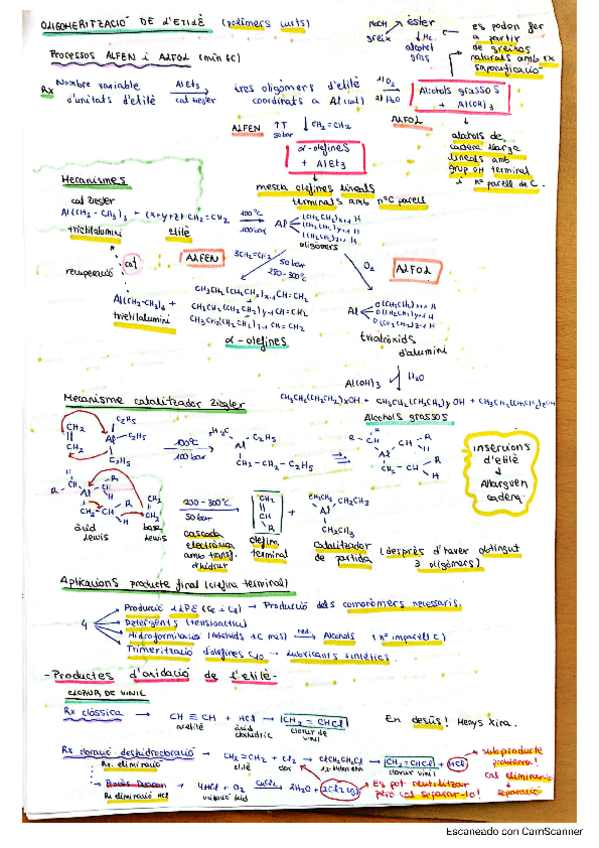 OLIGOMERITZACIÓ DE L'ETILÈ (polímers curts)
Processos ALFEN i ALFOL (mín 6C)
NaOH → èster
greix
↓ H₂
alcohol gras
es poden fer a partir de greixos naturals amb rx saponificació
Rx Nombre variable d'unitats d'etilè
AlEt₃
cat Ziegler
tres oligòmers d'etilè coordinats a Al(cat)
1) O₂
2) H₂O
Alcohols grassos + Al(OH)₃
ALFEN
↑T
50 bar
CH₂=CH₂
ALFOL
α-olefines + AlEt₃
alcohols de cadena llarga lineals amb grup OH terminal i nº parell de C.
mescla olefines lineals terminals amb nºC parell
Mecanismes
cat Ziegler
Al(CH₂-CH₃)₃ + (x+y+z) CH₂=CH₂
100ºC
100 bar
Al
(CH₂CH₂)x+1 H
(CH₂CH₂)y+1 H
(CH₂CH₂)z+1 H
trietilalumini
etilè
oligòmers
cat
recuperació
ALFEN
3CH₂=CH₂
50 bar
250-300ºC
O₂
ALFOL
Al(CH₂-CH₃)₃ +
trietilalumini
CH₃CH₂(CH₂CH₂)x-1 CH=CH₂
CH₃CH₂(CH₂CH₂)y-1 CH=CH₂
CH₃CH₂(CH₂CH₂)z-1 CH=CH₂
α-olefines
Al
O(CH₂CH₂)x+1 H
O(CH₂CH₂)y+1 H
O(CH₂CH₂)z+1 H
trialcòxids d'alumini
Al(OH)₃
H₂O
CH₃CH₂(CH₂CH₂)xOH + CH₃CH₂(CH₂CH₂)yOH + CH₃CH₂(CH₂CH₂)zOH
Alcohols grassos
Mecanisme catalitzador Ziegler
CH₂
CH₂
Al
C₂H₅
C₂H₅
100ºC
100 bar
Al
C₂H₅
CH₂-CH₂-C₂H₅
Insercions d'etilè
↓
Allarguen cadena
àcid Lewis
base Lewis
200-300ºC
50 bar
cascada electrònica amb transf. d'hidrur
CH₂
CH
R
olefina terminal
+
CH₃CH₂
CH₂CH₃
Al
CH₂CH₃
Catalitzador de partida
(després d'haver obtingut 3 oligòmers)
Aplicacions producte final (olefina terminal)
4
Producció LLDPE (C₆ i C₈) → Producció dels comonòmers necessaris.
Detergents (tensioactius)
Hidroformilació (aldehids 1C més) red. Alcohols (nº imparell C)
Trimerització d'olefines C₁₀ → Lubricants sintètics.
-Productes d'oxidació de l'etilè-
CLORUR DE VINIL
Rx clàssica → CH≡CH + HCl → CH₂=CHCl
acetilè
àcid clorhídric
clorur de vinil
En desús! Menys Xina.
Rx cloració-deshidrocloració → CH₂=CH₂ + Cl₂ → ClCH₂CH₂Cl → CH₂=CHCl + HCl
Rx. eliminació
etilè
clor
clorur vinil
subproducte problema!
cal eliminació
separació
Rx eliminació HCl
4HCl + O₂
CuCl₂
2H₂O + 2Cl₂(g)
Es pot reutilitzar però cal separar-lo!
Escaneado con CamScanner